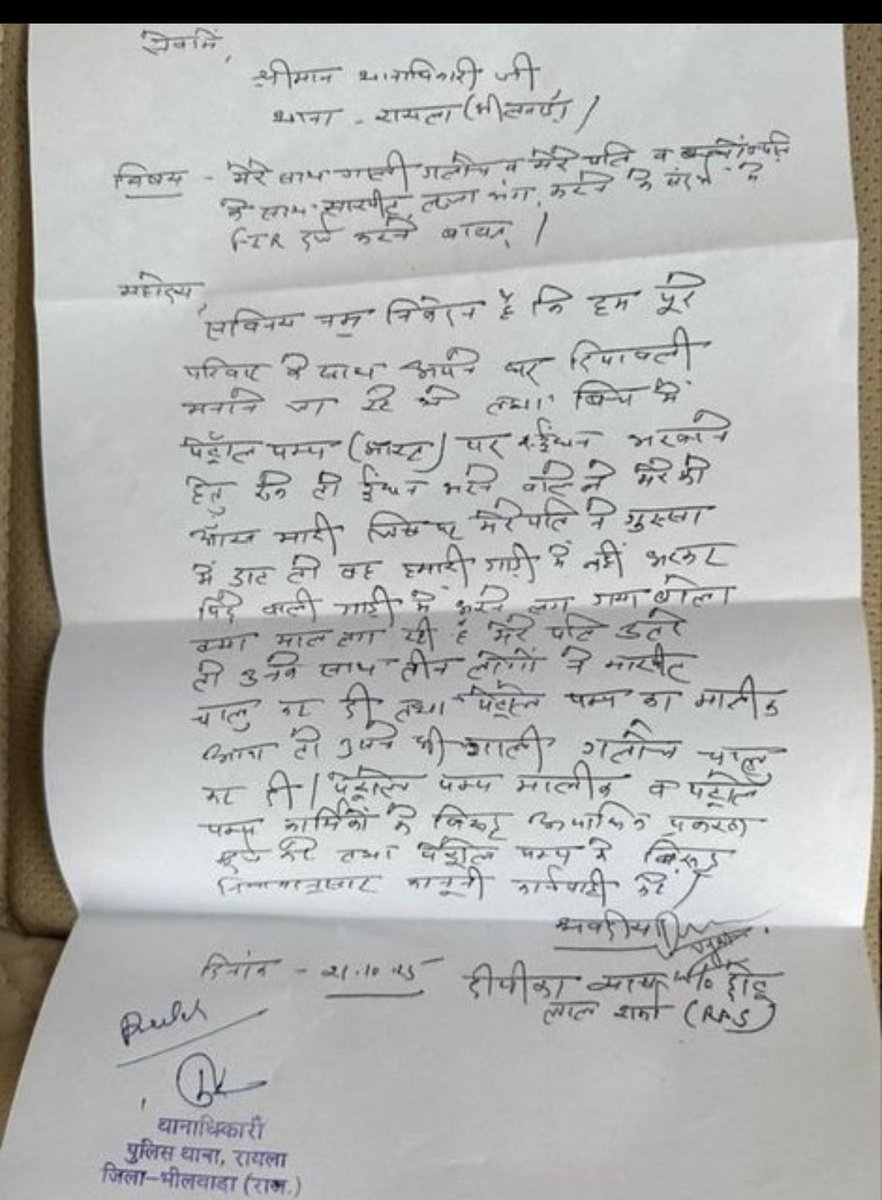 सेवामें,
श्रीमान थानाधिकारी जी
थाना - रायला (भीलवाड़ा) /
विषय - मेरे साथ गाली गलौच व मेरे पति व
के साथ मारपीट, लज्जा भंग करने के संदर्भ में
FIR दर्ज करने बाबत् /
महोदय,
सविनय नम्र निवेदन है कि हम पूरे
परिवार के साथ अपने घर दिपावली
मनाने जा रहे थे तथा बिच में
पेट्रोल पम्प (भारत) पर ईंधन भरवाने
हेतु रुके तो ईंधन भरने वाले ने मेरे को
आँख मारी जिस पर मेरे पति ने गुस्सा
में डाट तो वह हमारी गाड़ी में नहीं भरकर
पिछे वाली गाड़ी में भरने लग गया बोला
क्या माल लग रही है मेरे पति उतरे
तो उनके साथ तीन लोगों ने मारपीट
चालु कर दी तथा पेट्रोल पम्प का मालीक
आया तो उसने भी गाली गलौच चालु
कर दी / पेट्रोल पम्प मालीक व पेट्रोल
पम्प कार्मिकों के विरूद्ध आपराधिक प्रकरण
दर्ज करे तथा पेट्रोल पम्प के विरूद्ध
नियमानुसार कानूनी कार्यवाही करे /
भवदीया
दिनांक - 21.10.25 दीपीका व्यास w/o छोटू
लाल शर्मा (RAS)
थानाधिकारी
पुलिस थाना, रायला
जिला-भीलवाडा (राज.)